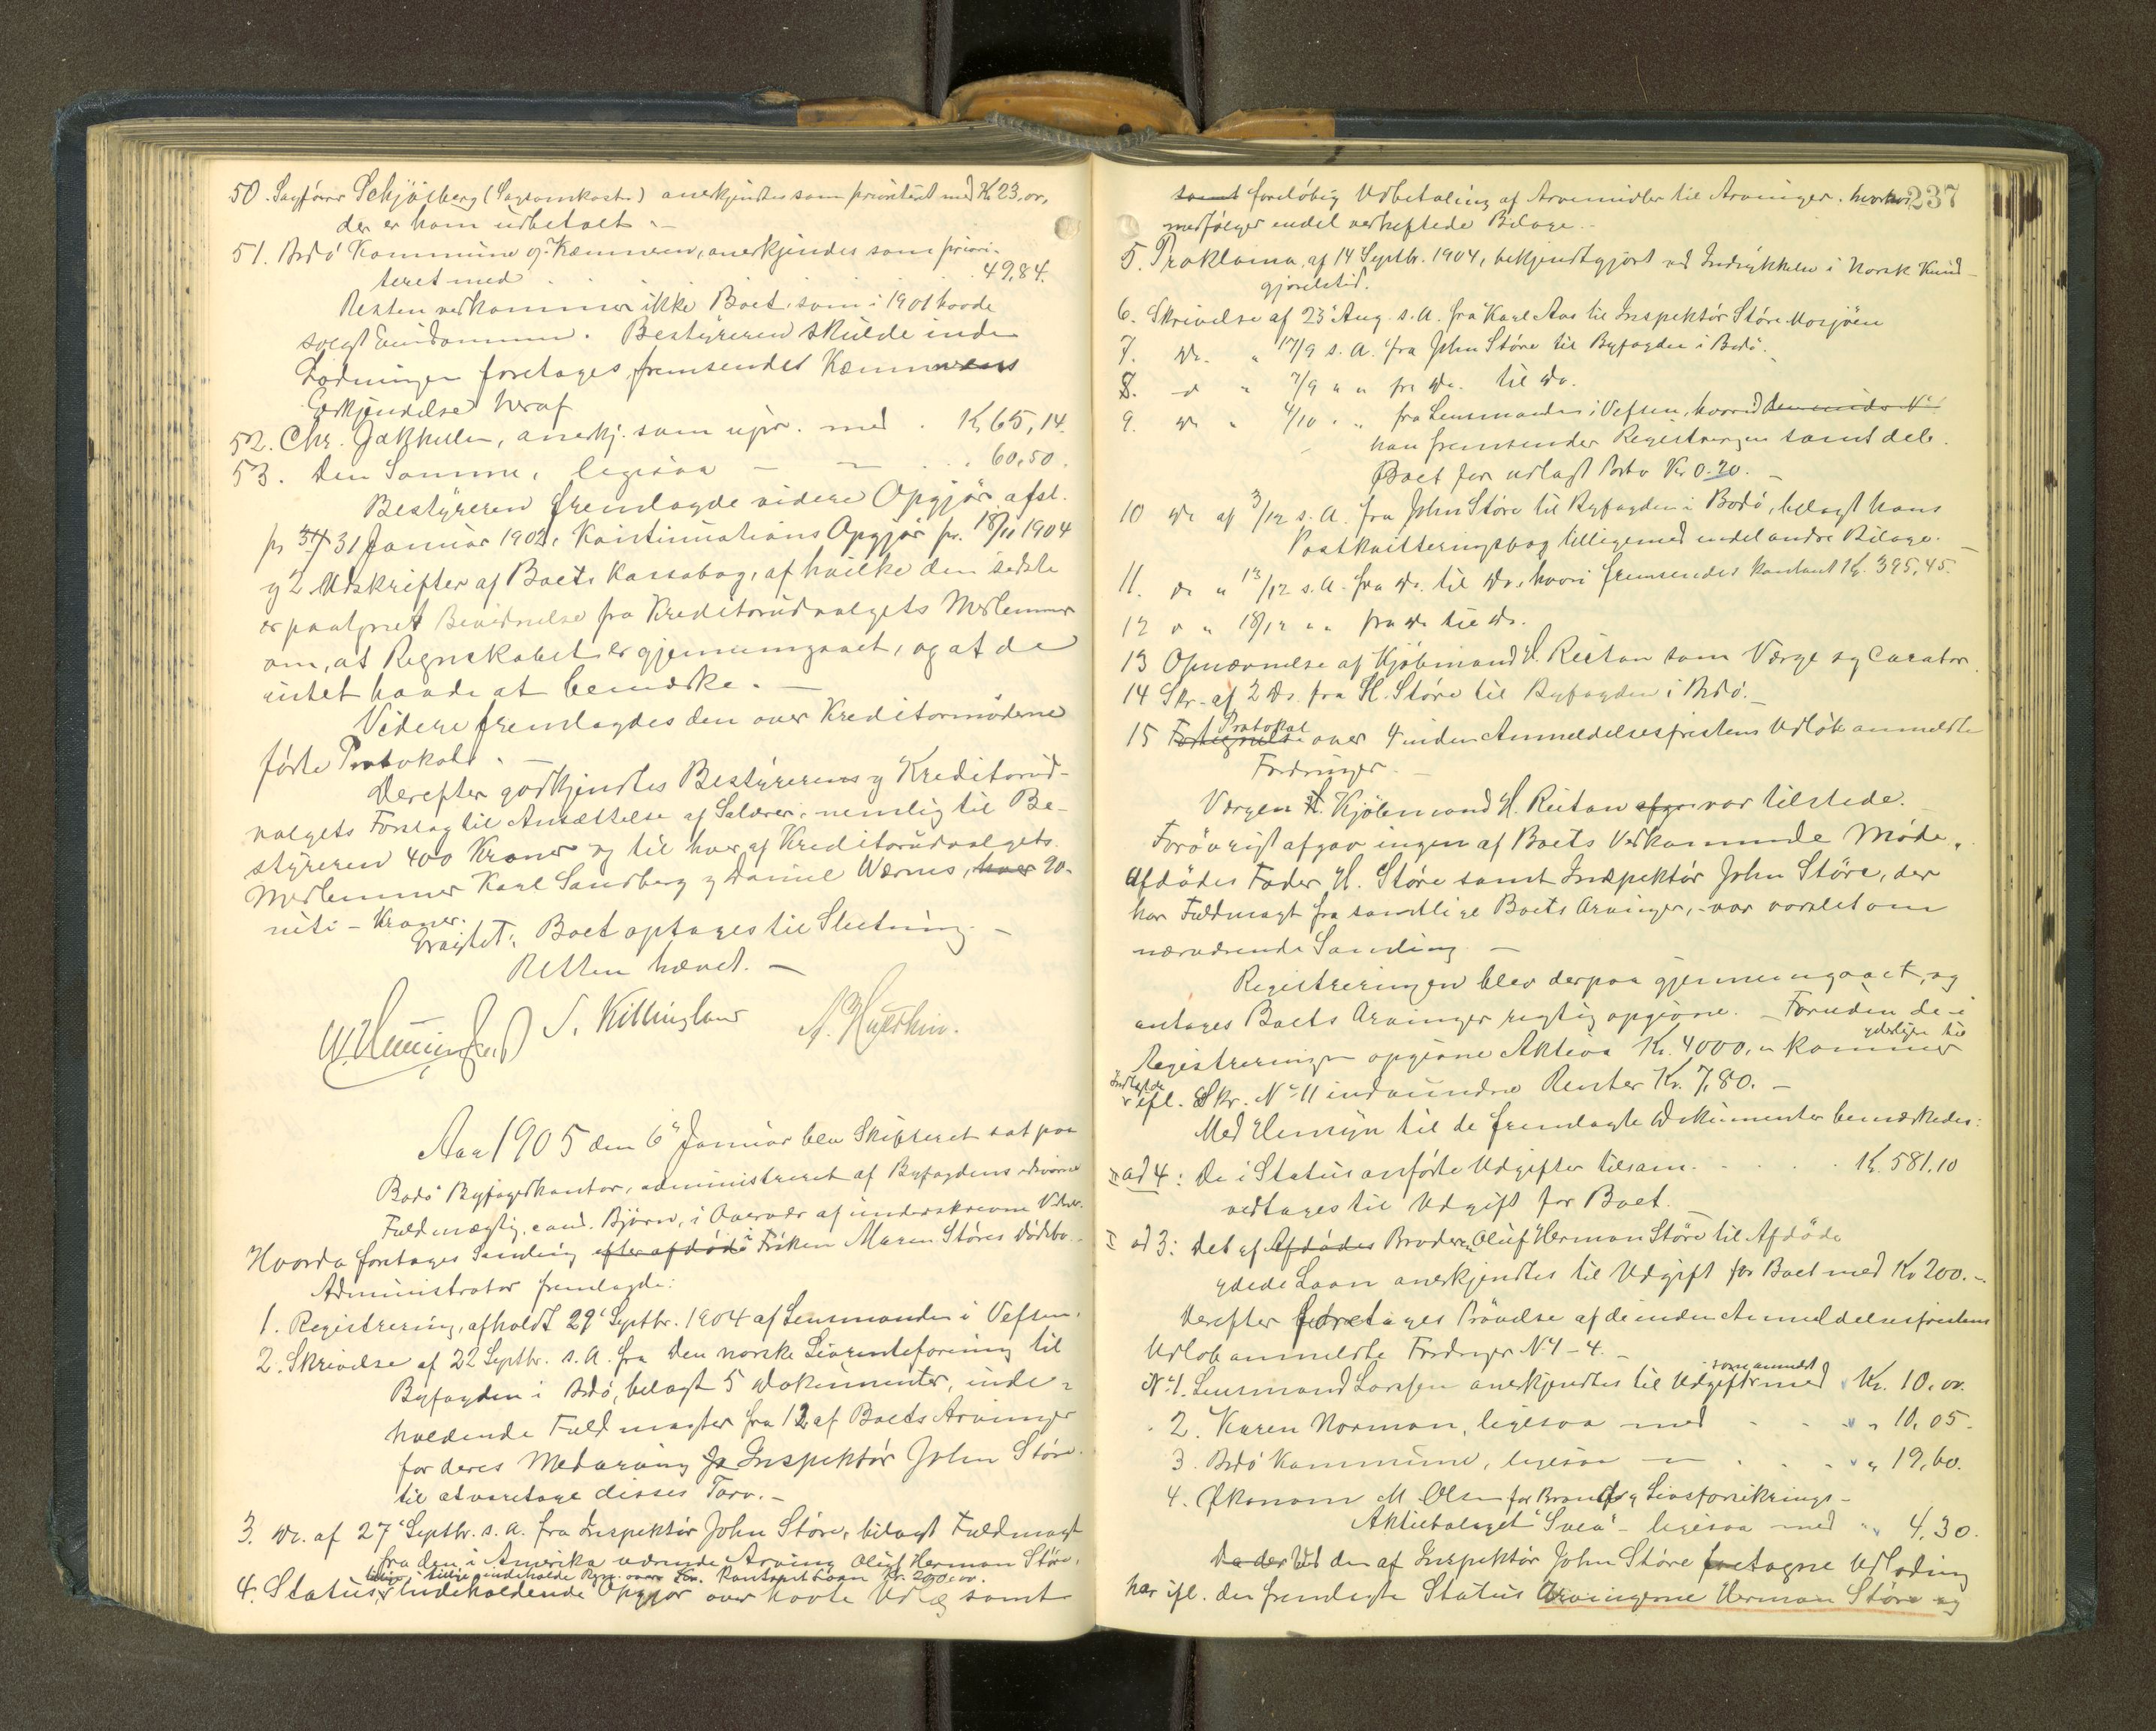 50. Sagfører Schjölberg (Sagsomkostn.) anerkjendtes som prioriteret med Kr 23,00,
der er ham udbetalt. –
51. Bodö Kommune og Kæmneren, anerkjendes som priori-
teret med . . . 49,84.
Resten vedkommer ikke Boet, som i 1901 havde
solgt Eiendommen. Bestyreren skulde inden
Lodningen foretages, fremsendes Kæmnerens
Erkjendelse heraf
52. Chr. Jakhelln, anerkj. som upr. med . Kr. 65,14.
53. Den Samme, ligesaa – – . . . 60,50.
Bestyreren fremlagde videre Opgjör afsl.
pr 31 Januar 1902, Kontinuations Opgjör pr. 18/11 1904
og 2 Udskrifter af Boets Kassabog, af hvilke den sidste
er paategnet Bevidnelse fra Kreditorudvalgets Medlemmer
om, at Regnskabet er gjennemgaaet, og at de
intet havde at bemærke. –
Videre fremlagdes den over Kreditormöderne
førte Protokol. –
Derefter godkjendtes Bestyrerens og Kreditorud-
valgets Forslag til Ansættelse af Salærer, nemlig til Be-
styreren 400 Kroner og til hver af Kreditorudvalgets
Medlemmer Karl Sandberg og Daniel Wærnes, hver 90-
niti – Kroner.
Eragtet: Boet optages til Slutning. –
Retten hævet. –
S. Killingland
Aar 1905 den 6 Januar blev Skifteret sat paa
Bodö Byfogedkontor, administreret af Byfogdens edsvorne
Fuldmægtig, cand. Björn, i Overvær af underskrevne Vidner.
Hvorda foretages Samling efter afdöde i Fröken Maren Störes Dödsbo. –
Administrator fremlagde:
1. Registrering, afholdt 29 Septbr. 1904 af Lensmanden i Vefsen.
2. Skrivelse af 22 Septbr. s. A. fra Den norske Livrenteforening til
Byfogden i Bodö, belagt 5 Dokumenter, inde-
holdende Fuldmagter fra 12 af Boets Arvinger
for deres Medarving Inspektör John Störe
til at varetage disses Tarv. –
3. Do. af 27 Septbr. s. A. fra Inspektör John Störe, bilagt Fuldmagt
fra den i Amerika værende Arving Oluf Herman Störe,
indeholde Kontant Laan Kr. 200,00.
4. Status, Indeholdende Opgjör over havte Udlæg samt
237
samt foreløbig Udbetaling af Arvemidler til Arvinger, hvorhos
medfølger endel vedheftede Bilage. –
5. Proklama, af 14 Septbr. 1904, bekjendtgjort ved Indrykkelse i Norsk Kund-
gjørelstid.
6. Skrivelse af 23 Aug. s. A. fra Karl Aas til Inspektör Störe Mosjöen
7. Do. " 17/9 s. A. fra John Störe til Byfogden i Bodö.
8. d " 7/9 " " fra Do. til Do.
9. Do " 4/10 " " fra Lensmanden i Vefsen, hvorved
han fremsender Registreringen samt deb.
Boet for udlagt Porto Kr 0.20. –
10 Do af 3/12 s. A. fra John Störe til Byfogden i Bodö, belagt hans
Postkvitteringsbog tilligemed endel andre Bilage. –
11. Do " 13/12 s. A. fra Do. til Do., hvori fremsendes kontant Kr. 395,45.
12 d " 18/12 " " fra Do til Do.
13 Opnævnelse af Kjöbmand H. Reitan som Værge og Curator.
14 Skr. af 2 Ds. fra H. Störe til Byfogden i Bodö. –
Protokol
15 Fortegnelse over 4 inden Anmeldelsesfristens Udløb anmeldte
Fordringer –
Værgen H. Kjöbmand H. Reitan var tilstede.
Forøvrigt afgav ingen af Boets Vedkommende Møde.
Afdödes Fader H. Störe samt Inspektör John Störe, der
har Fuldmagt fra samtlige Boets Arvinger, var varslet om
nærværende Samling –
Registreringen blev derpaa gjennemgaaet, og
antages Boets Arvinger rigtig opgivne. – Foruden de i
yderligere til
Registreringen opgivne Aktiva Kr. 4000,– kommer
Indtægt de
ifl. Skr. No 11 indvundne Renter Kr. 7,80. –
Med Hensyn til de fremlagte Dokumenter bemærkedes:
ad 4: De i Status anførte Udgifter tilsam. . . . . Kr. 581,10
vedtages til Udgift for Boet.
ad 3: Det af Afdödes Broderen Oluf Herman Störe til Afdöde
ydede Laan anerkjendtes til Udgift for Boet med Kr 200. –
Derefter foretages Prövelse af de inden Anmeldelsesfristens
Udløb anmeldte Fordringer No 1–4. –
som anmeldt
No 1. Lensmand Larssen anerkjendtes til Udgift med Kr. 10,00.
2. Karen Norman, ligesaa med . . . " 10,05.
3. Bodö Kommune, ligesaa – . . . " 19,60.
4. Økonom M Olsen for Brand og Livsforsikrings-
Aktiebolaget "Svea" – ligesaa med " 4,30.
Da der Ved den af Inspektör John Störe foretagne Udlodning
har ifl. den fremlagte Status Arvingerne Herman Störe og